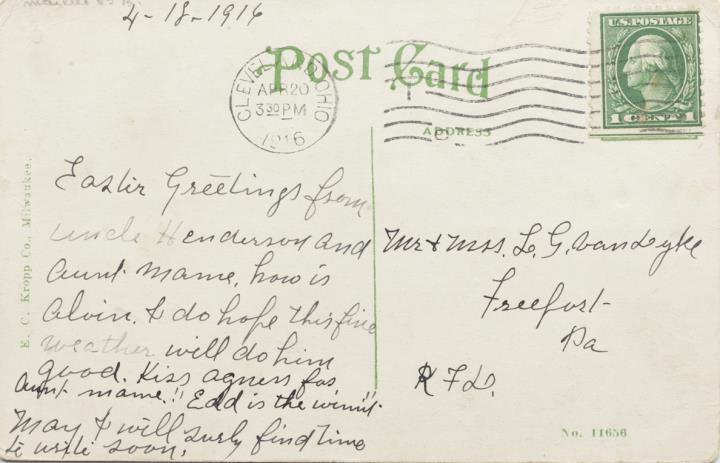 4-18-1916
Post Card
CLEVELAND, OHIO
APR 20
3 30 PM
1916
U.S. POSTAGE
1 CENT 1
ADDRESS
Easter Greetings from
Uncle Henderson and
Aunt Mame, how is
Alvin. I do hope this fine
weather will do him
good. Kiss Agness for
Aunt mame.!! Edd is the
May I will surly find time
to write soon.
Mr & Mrs. L. G. VanDyke
Freeport
Pa
R F D.
E. C. Kropp Co., Milwaukee.
No. 11656